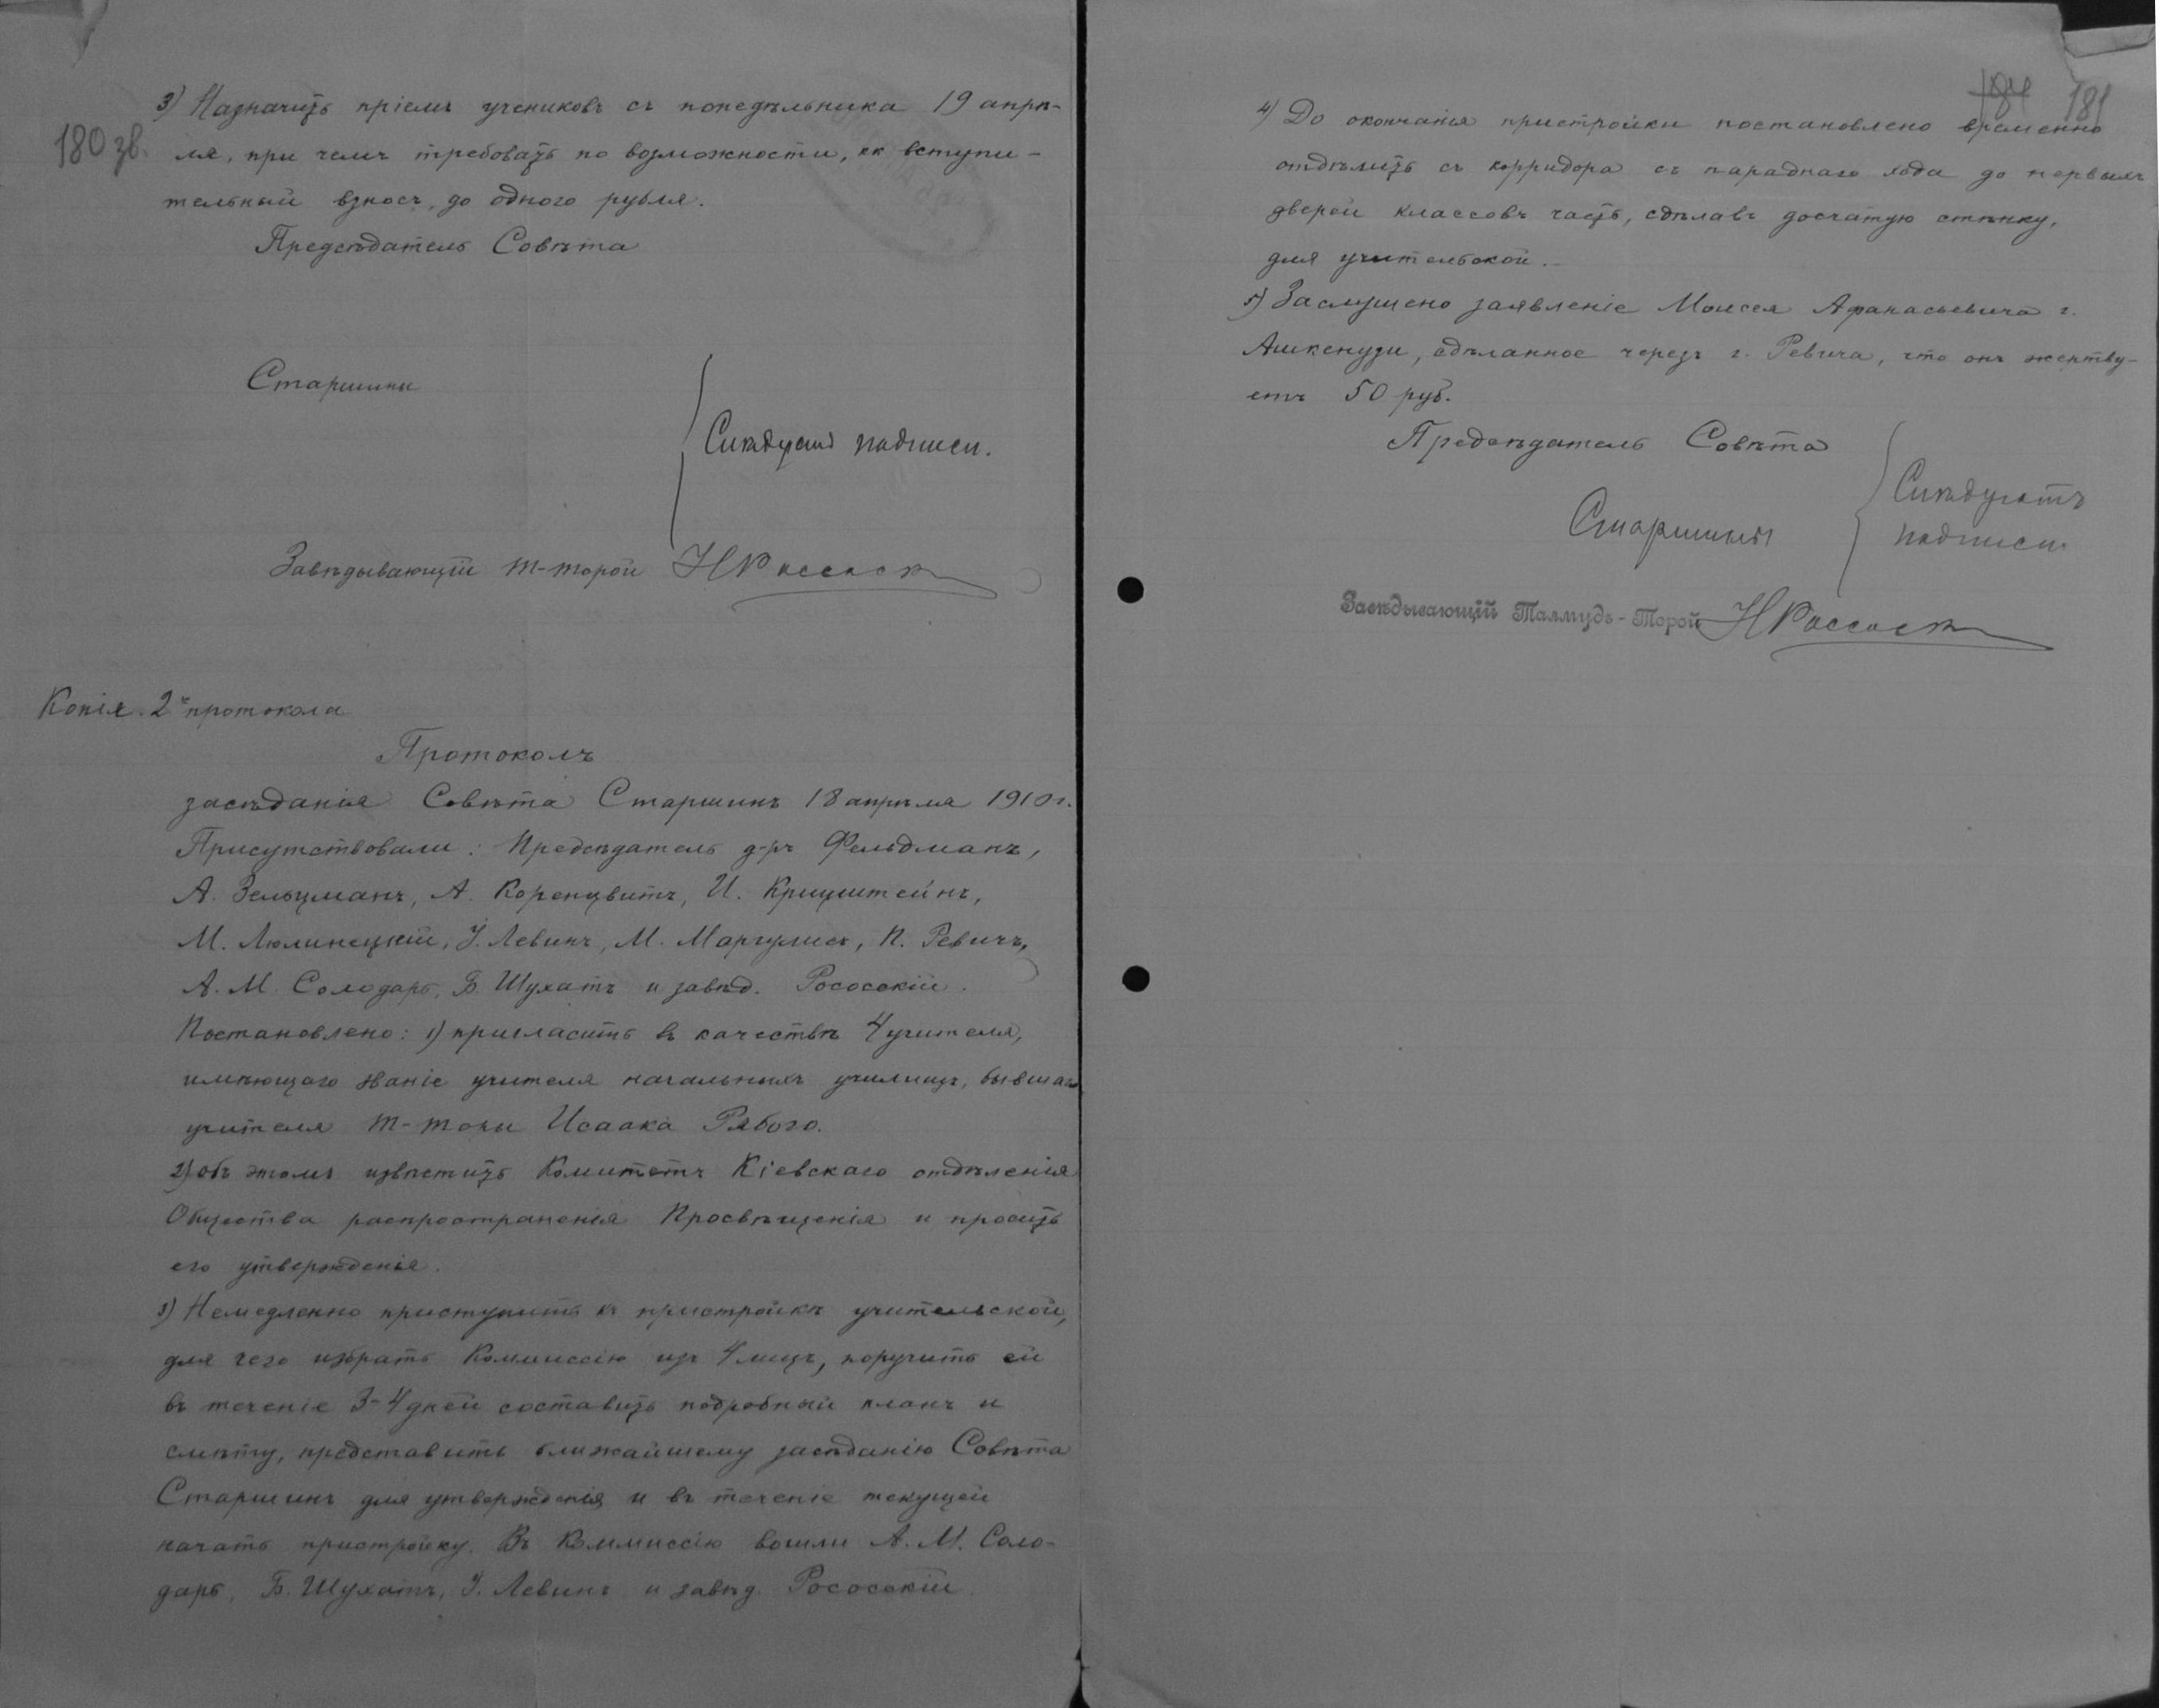 180 зв.
3) Назначить пріемъ учениковъ съ понедѣльника 19 апрѣ-
ля, при чемъ требовать по возможности, как вступи-
тельный взносъ, до одного рубля.
Предсѣдатель Совѣта
Старшины
Слѣдуютъ подписи.
Завѣдывающій т-торой НРососкій
Копія 2го протокола
Протоколъ
засѣданія Совѣта Старшинъ 18 апрѣля 1910 г.
Присутствовали: Предсѣдатель д-ръ Фельдманъ,
А. Зельцманъ, А. Коренцвитъ, И. Крицштейнъ,
М. Люлинецкій, У. Левинъ, М. Маргулисъ, П. Ревичъ,
А. М. Солодарь, Б. Шухатъ и завѣд. Рососкій.
Постановлено: 1) пригласить въ качествѣ 4 учителя,
имѣющаго званіе учителя начальныхъ училищъ, бывшаго
учителя т-торы Исаака Рябого.
2) Объ этомъ извѣстить Комитетъ Кіевскаго отдѣленія
Общества распространенія Просвѣщенія и просить
его утвержденія.
3) Немедленно приступить къ пристройкѣ учительской,
для чего избрать Коммиссію изъ 4 лицъ, поручить ей
въ теченіе 3-4 дней составить подробный планъ и
смѣту, представить ближайшему засѣданію Совѣта
Старшинъ для утвержденія и въ теченіе текущей
начать пристройку. Въ Коммиссію вошли А. М. Соло-
дарь, Б. Шухатъ, У. Левинъ и завѣд. Рососкій.
184 181
4) До окончанія пристройки постановлено временно
отдѣлить съ корридора съ параднаго хода до первыхъ
дверей классовъ часть, сдѣлавъ досчатую стѣнку,
для учительской.
5) Заслушено заявленіе Моисея Афанасьевича г.
Ашкенузи, сдѣланное черезъ г. Ревича, что онъ жертву-
етъ 50 руб.
Предсѣдатель Совѣта
Старшины
Слѣдуютъ
подписи.
Завѣдывающій Талмудъ-Торой НРососкій